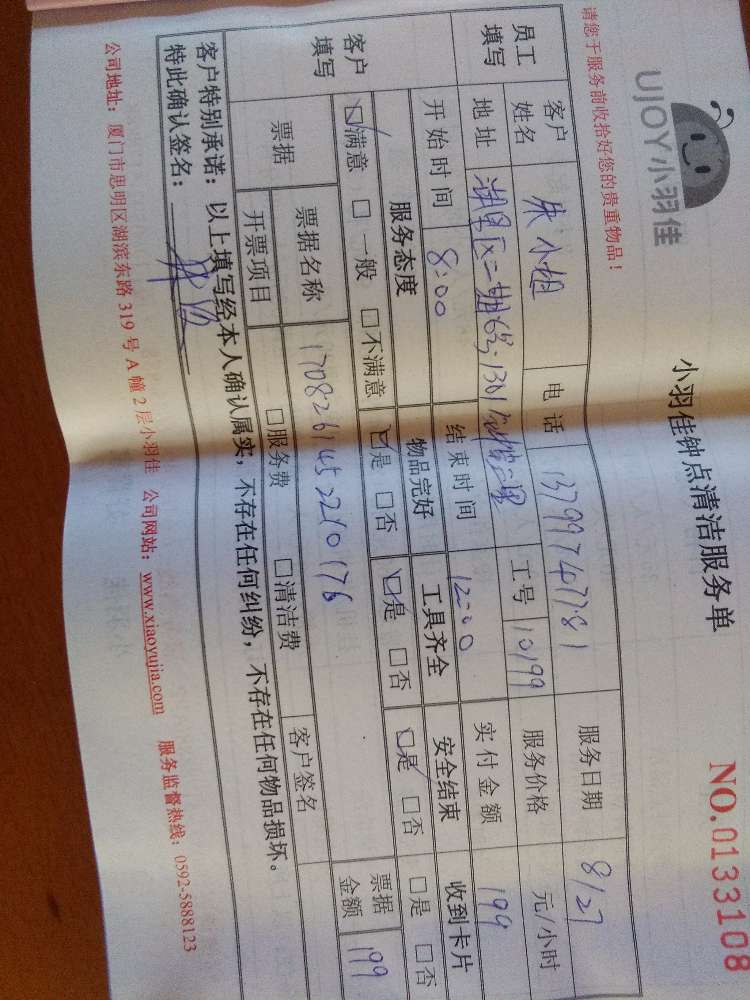 请您于服务前收拾好您的贵重物品！
UJOY小羽佳
小羽佳钟点清洁服务单
NO.0133108
员工填写
客户姓名 朱小姐 电话 13799747781 服务日期 8/27
地址 工号 10199 服务价格 元/小时
开始时间 8:00 结束时间 12:00 实付金额 199
客户填写
服务态度 物品完好 工具齐全 安全结束 收到卡片
☑满意 □一般 □不满意 ☑是 □否 ☑是 □否 ☑是 □否 □是 □否
票据 票据名称 客户签名 票据金额 199
开票项目 □服务费 □清洁费
客户特别承诺：以上填写经本人确认属实，不存在任何纠纷，不存在任何物品损坏。
特此确认签名：
公司地址：厦门市思明区湖滨东路 319 号 A 幢 2 层小羽佳 公司网站：www.xiaoyujia.com 服务监督热线：0592-5888123